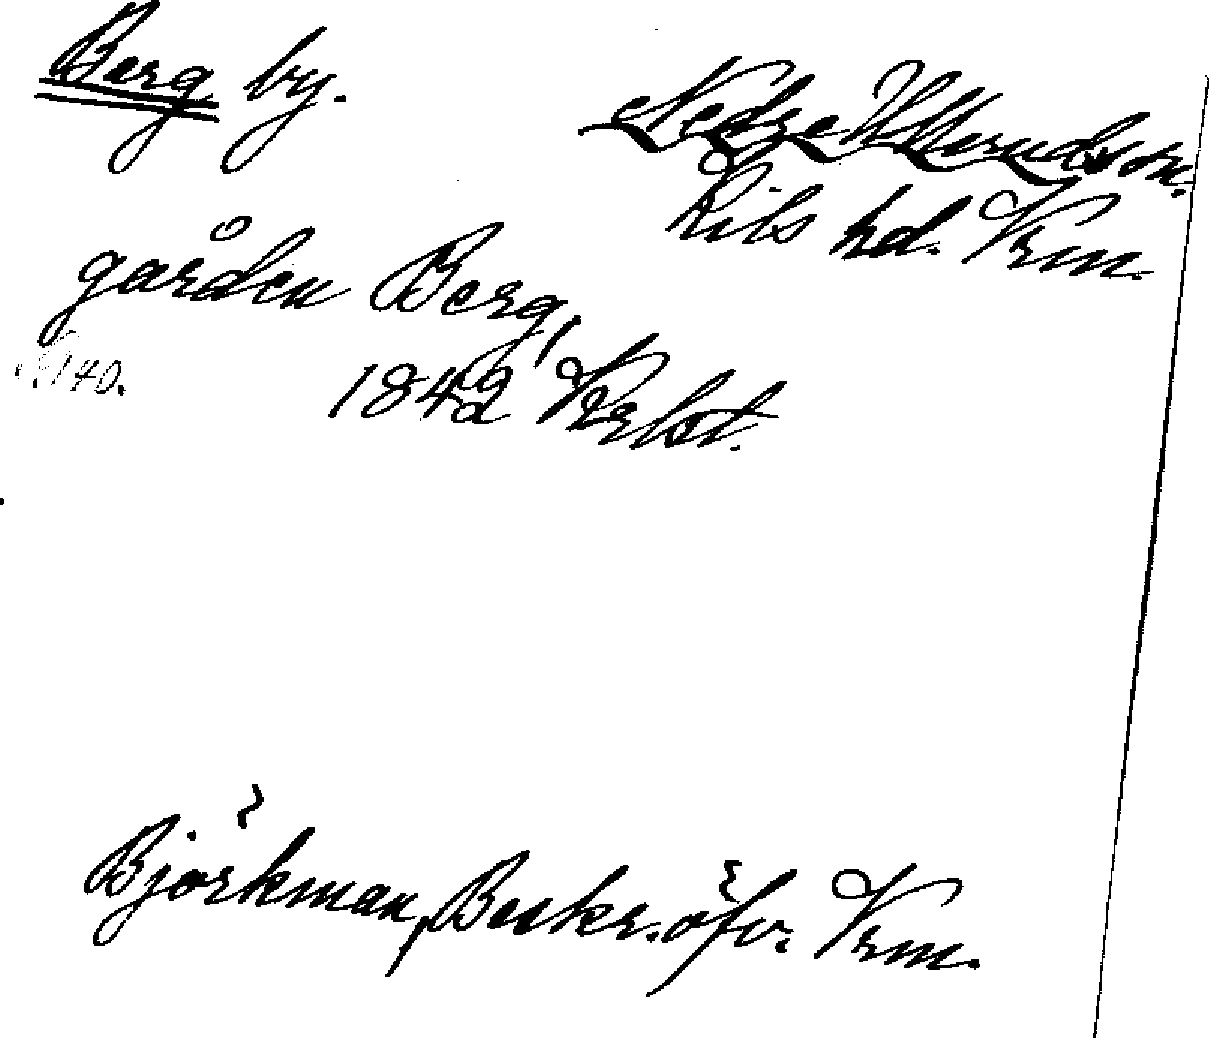 Berg by.
Nedre Ullerud sn.
Kils hd. Vrm.
gården Berg,
s. 140.
1842 Vrlst.
Björkman, Beskr. öfv. Vrm.